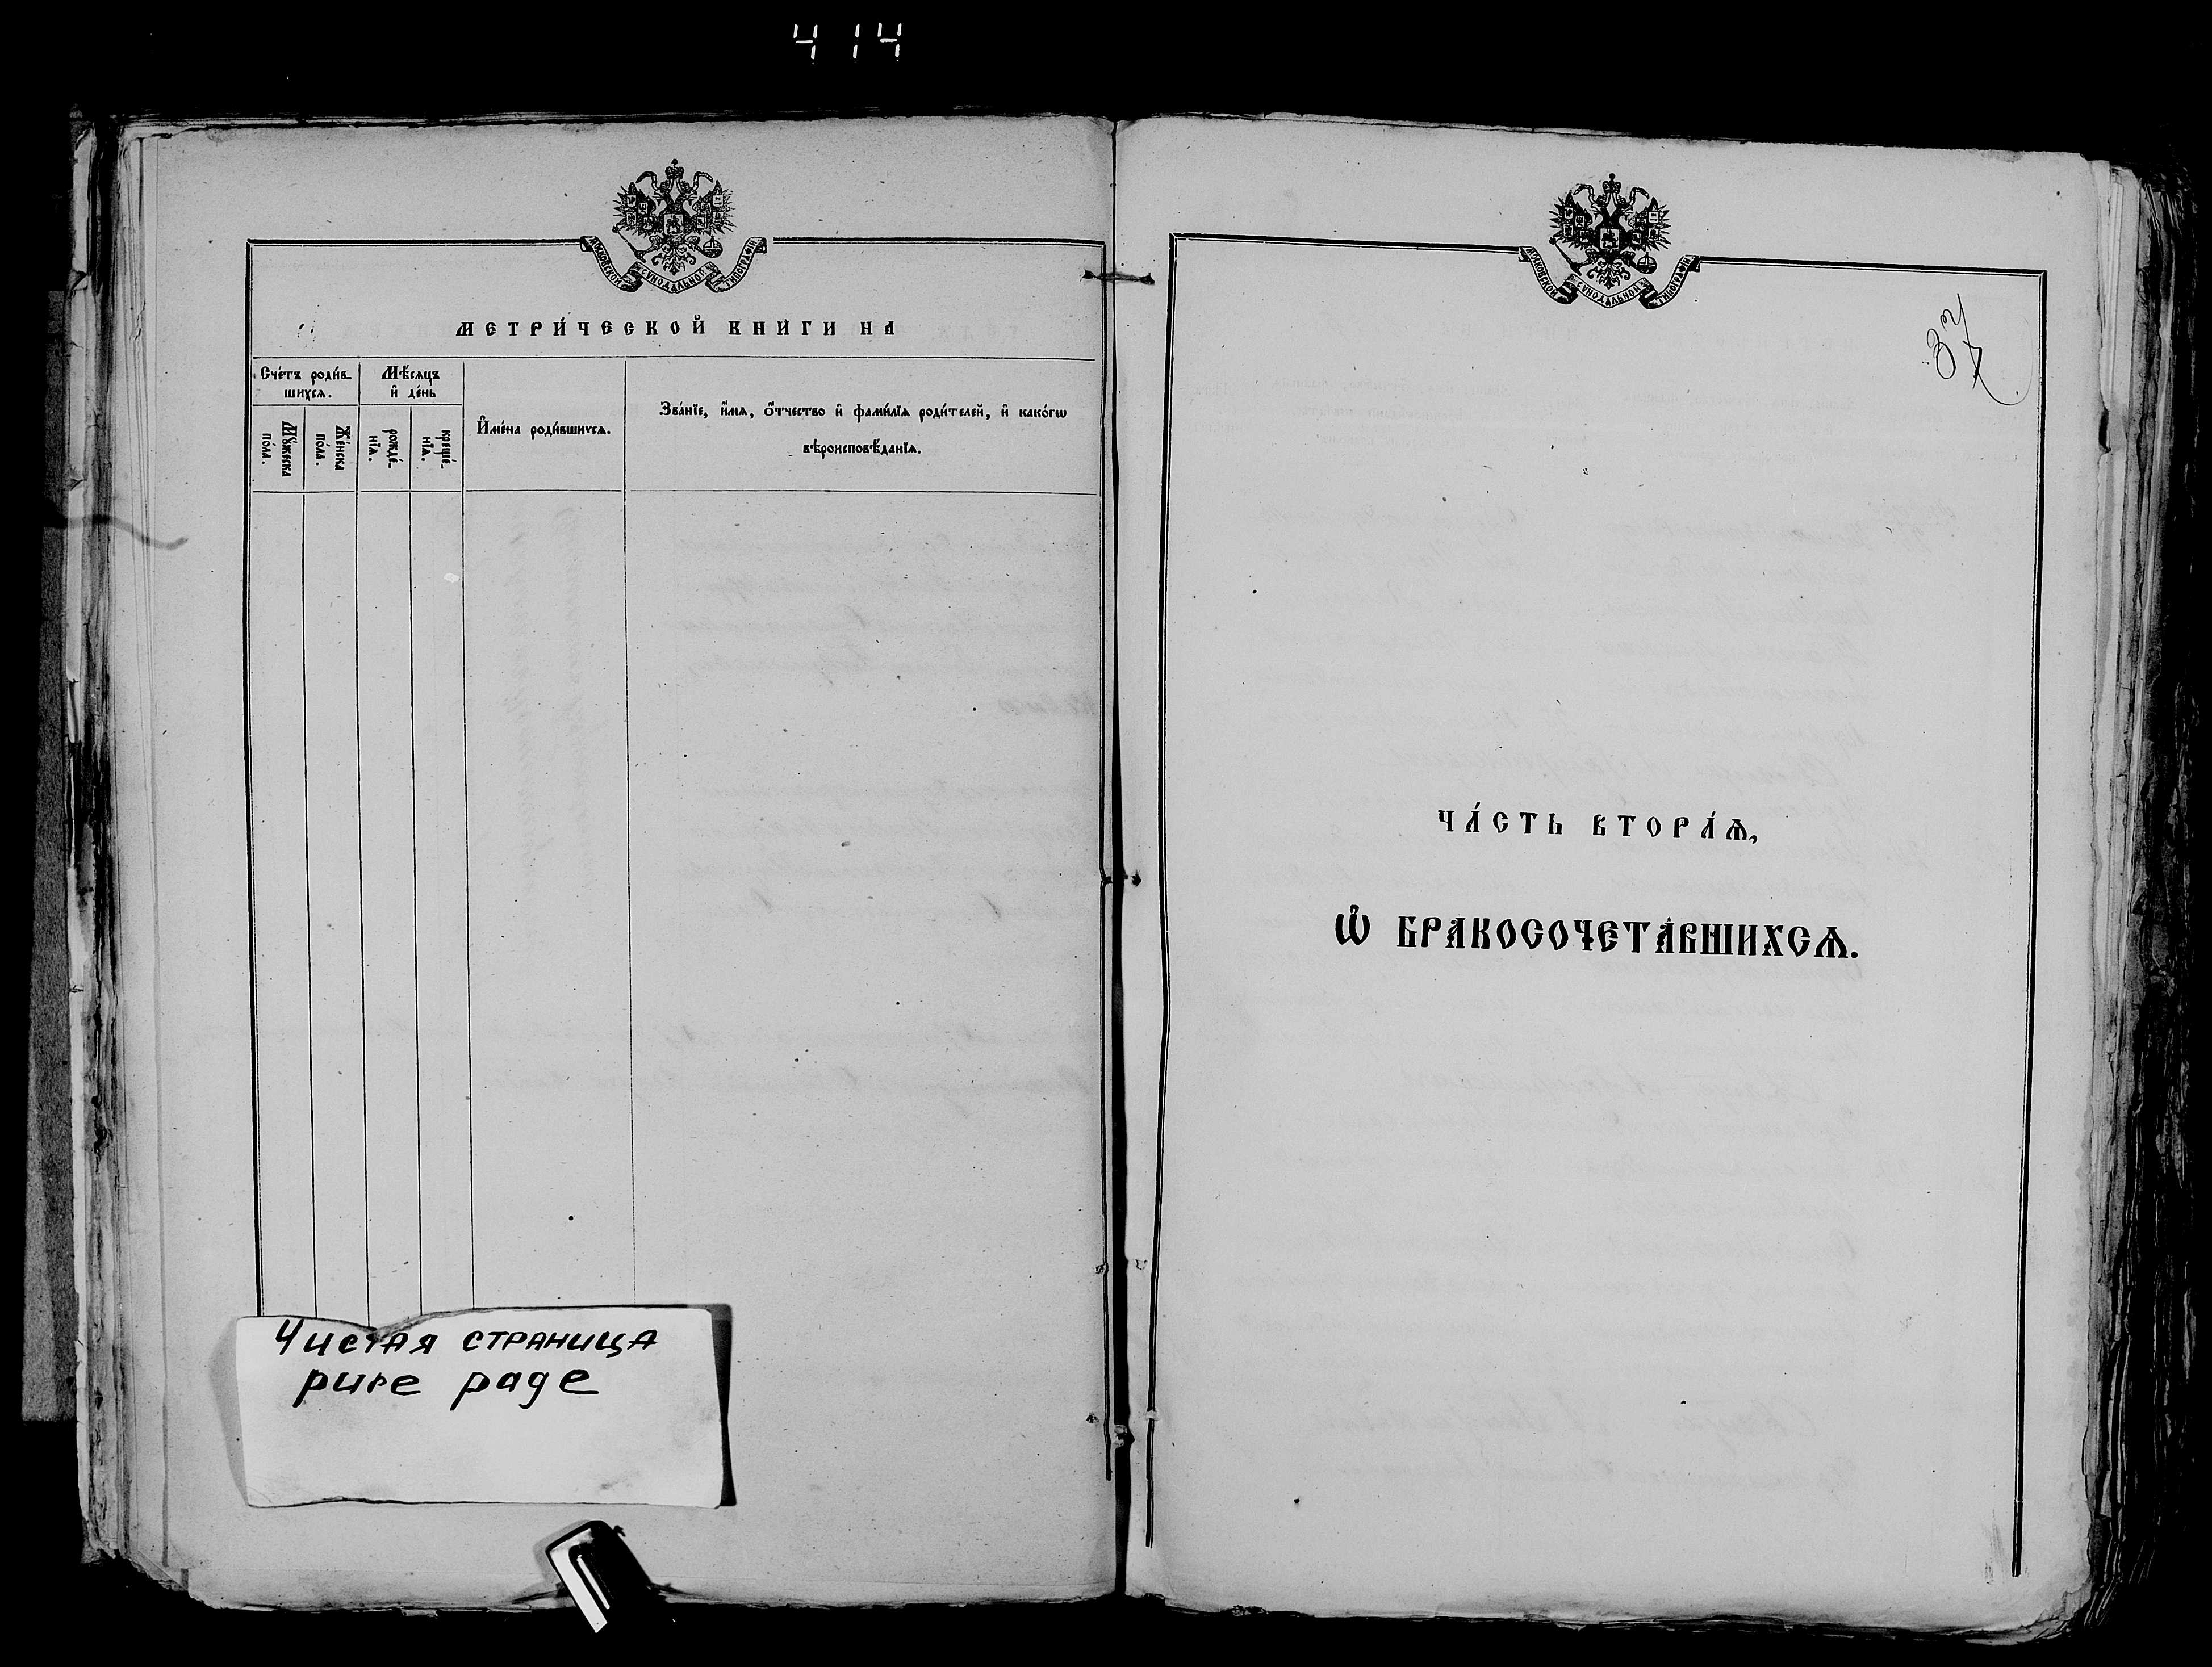 414
МОСКОВСКОЙ СѴНОДАЛЬНОЙ ТИПОГРАФІИ
МЕТРИ́ЧЕСКОЙ КНИ́ГИ НА
Сче́тъ роди́в-
шихсѧ.
Мѣ́сѧцъ
и҆ де́нь
И҆мена̀ роди́вшихсѧ.
Зва́нїе, и҆́мѧ, ѻ҆́тчество и҆ фами́лїѧ роди́телей, и҆ како́гѡ
вѣроисповѣ́данїѧ.
Мꙋ́жеска
по́ла.
Же́нска
по́ла.
рожде́-
нїѧ.
креще́-
нїѧ.
Чистая страница
pure page
МОСКОВСКОЙ СѴНОДАЛЬНОЙ ТИПОГРАФІИ
ЧА́СТЬ ВТОРА́Ѧ,
Ѡ҆ БРАКОСОЧЕТА́ВШИХСѦ.